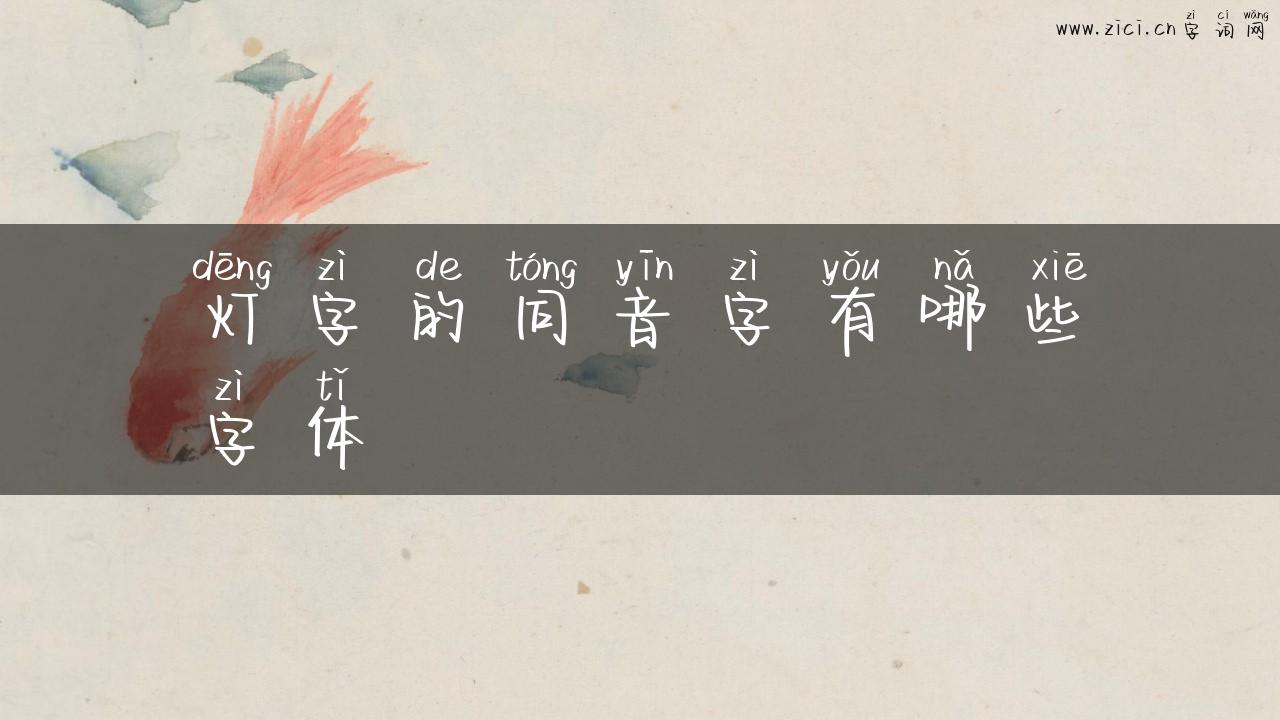 zì cí wǎng
www.zici.cn字词网
dēng zì de tóng yīn zì yǒu nǎ xiē
灯字的同音字有哪些
zì tǐ
字体